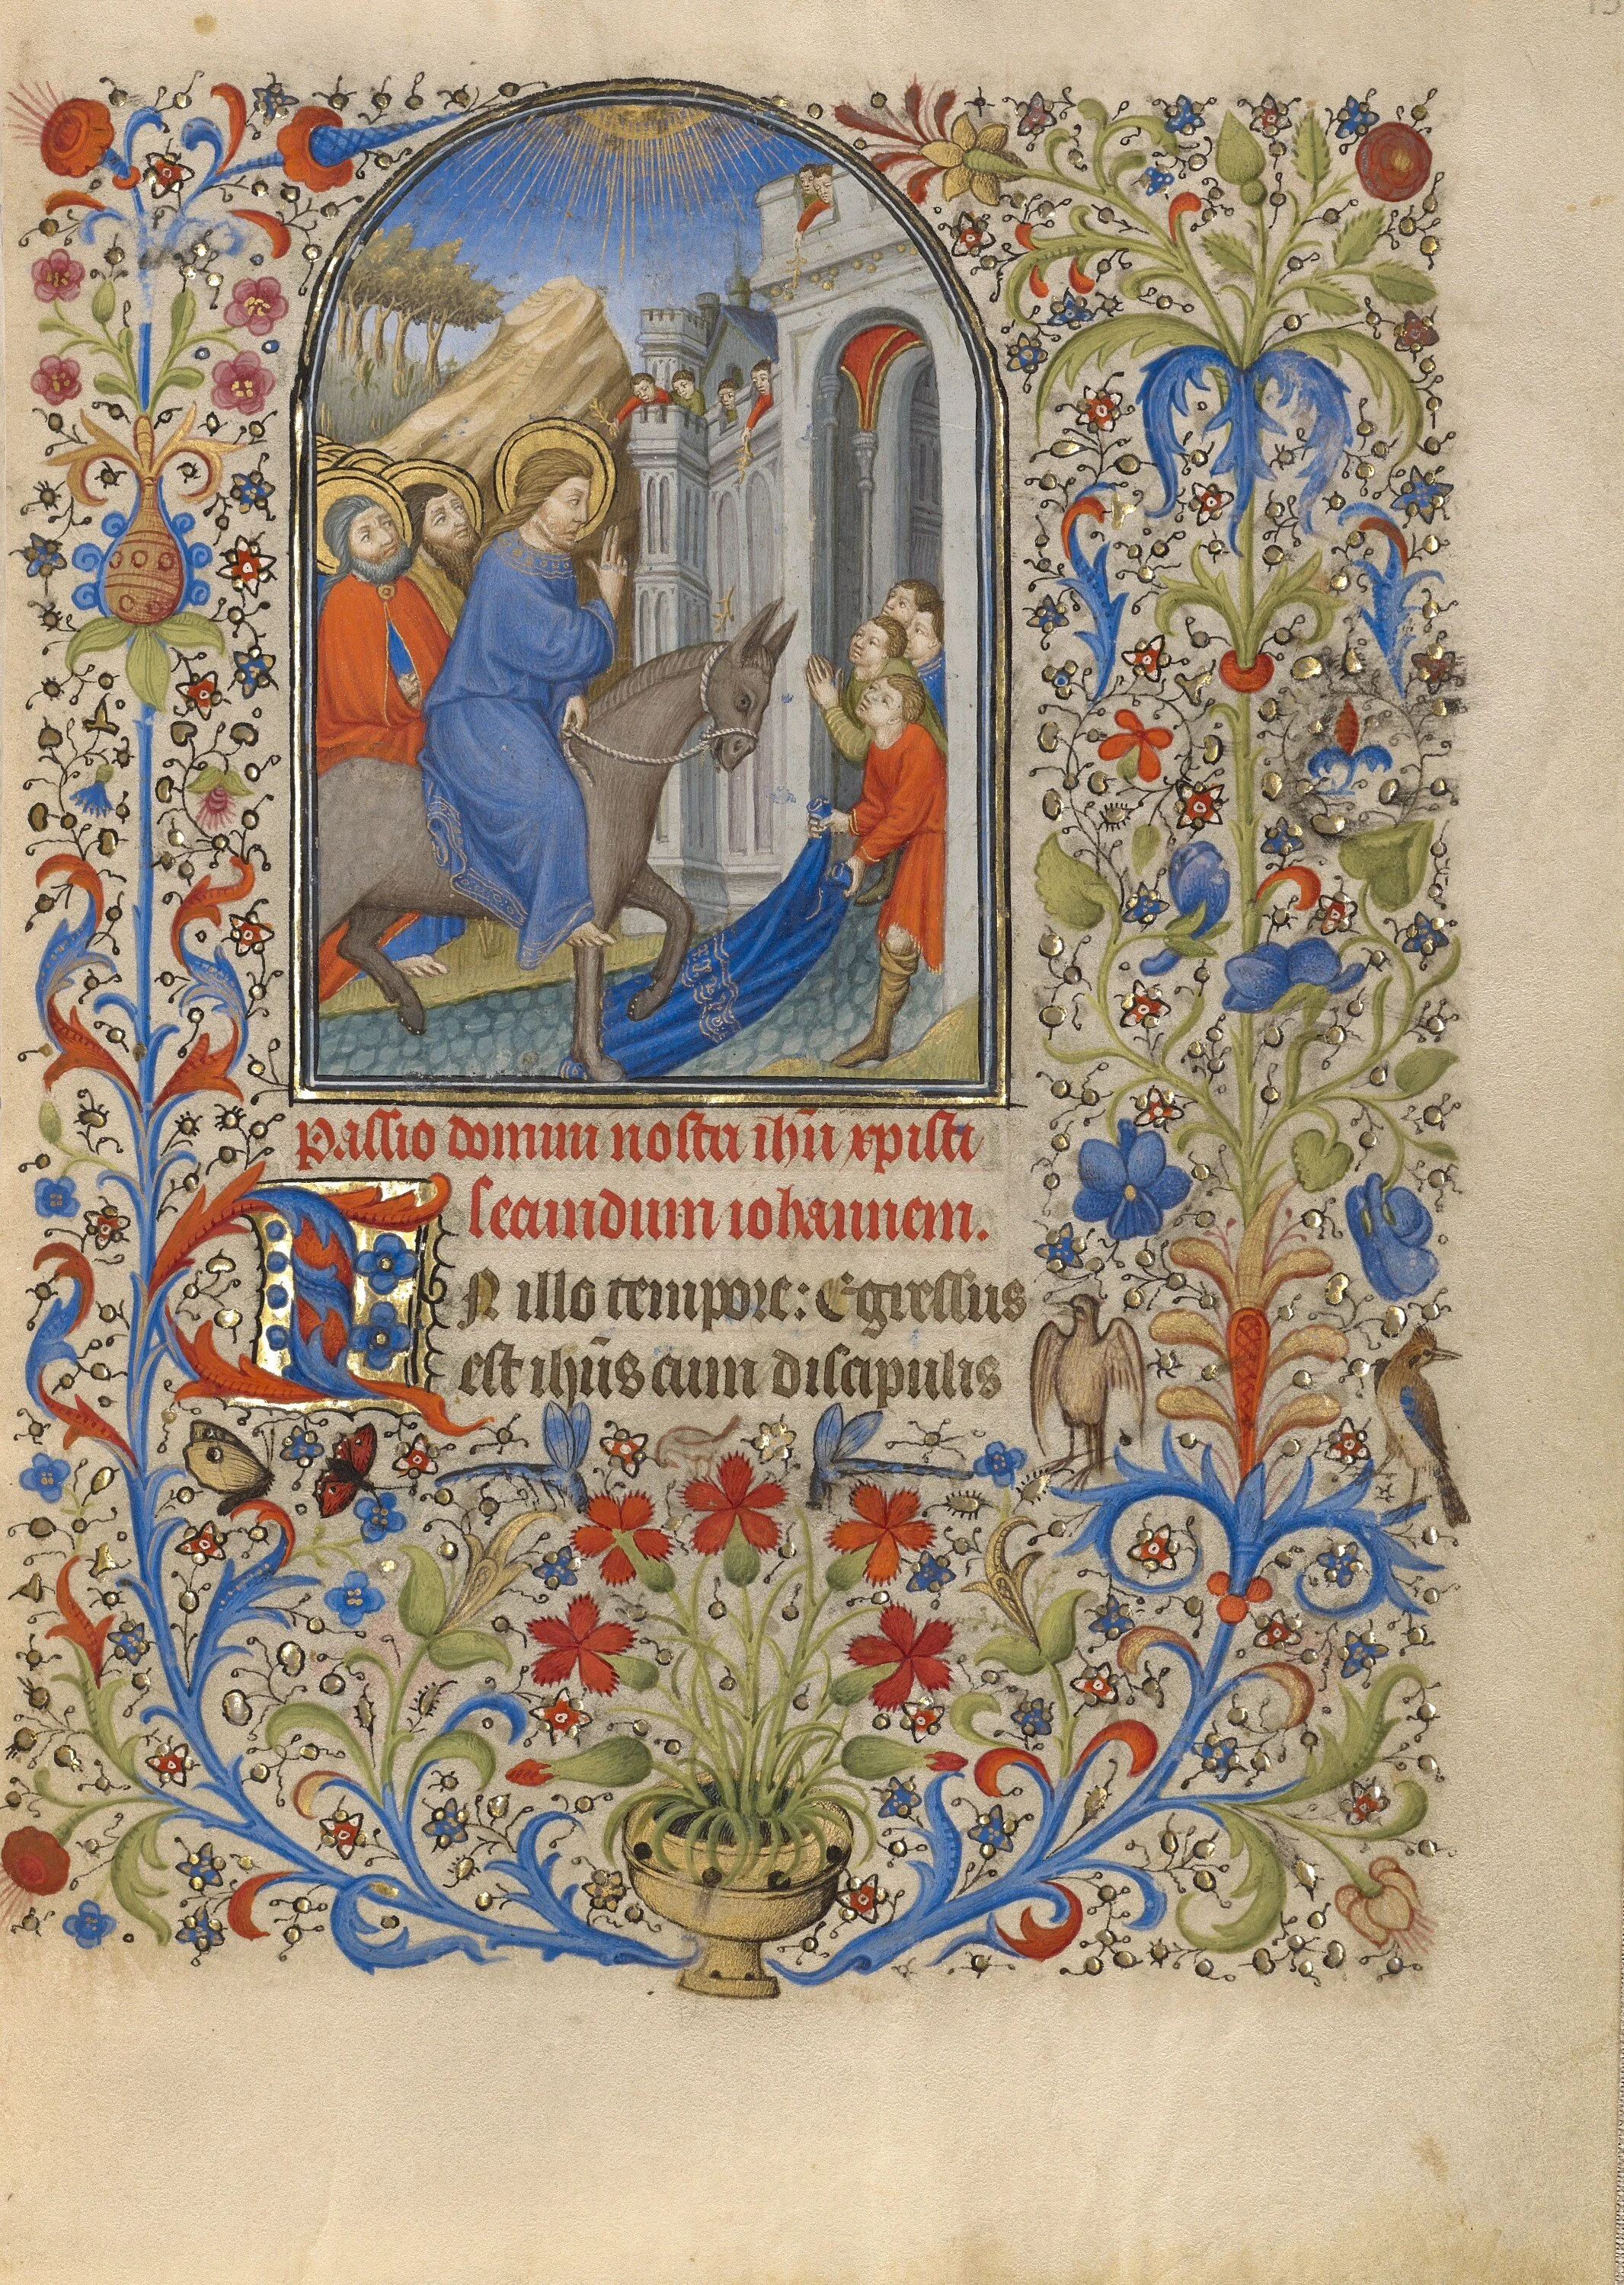 Passio domini nostri ihū xpisti
secundum iohannem.
IN illo tempore: Egressus
est ihūs cum discipulis